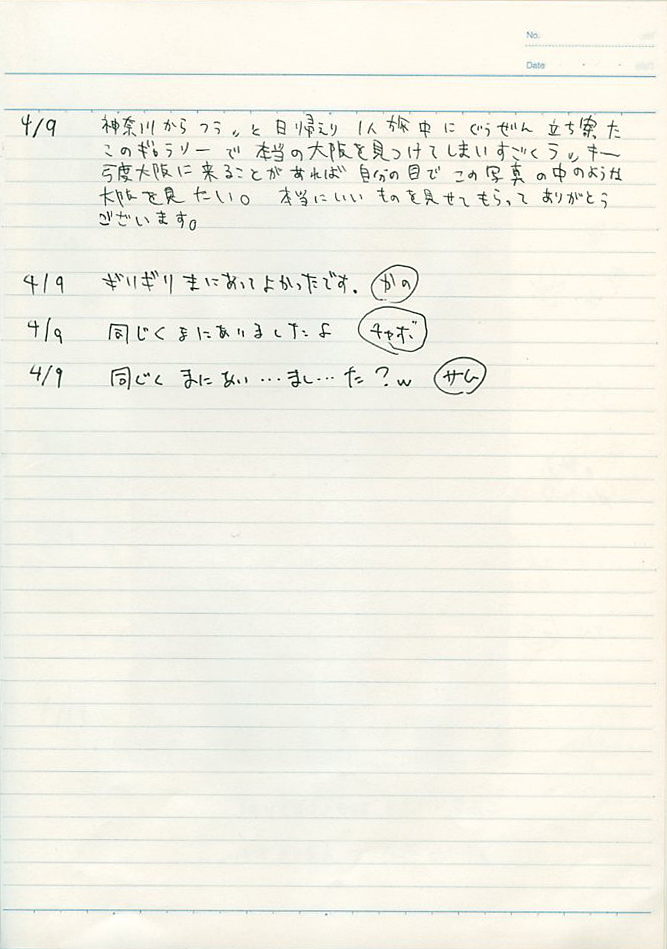 No.
Date
4/9 神奈川から フラッと 日帰えり 1人旅中に ぐうぜん 立ち寄った
このギャラリーで 本当の大阪を見つけてしまいすごくラッキー
今度大阪に来ることがあれば 自分の目で この写真の中のような
大阪を見たい。 本当にいいものを見せてもらって ありがとう
ございます。
4/9 ギリギリ まにあってよかったです。 かの
4/9 同じく まにありましたよ チャボ
4/9 同じく まにあい…まし…た?w サム